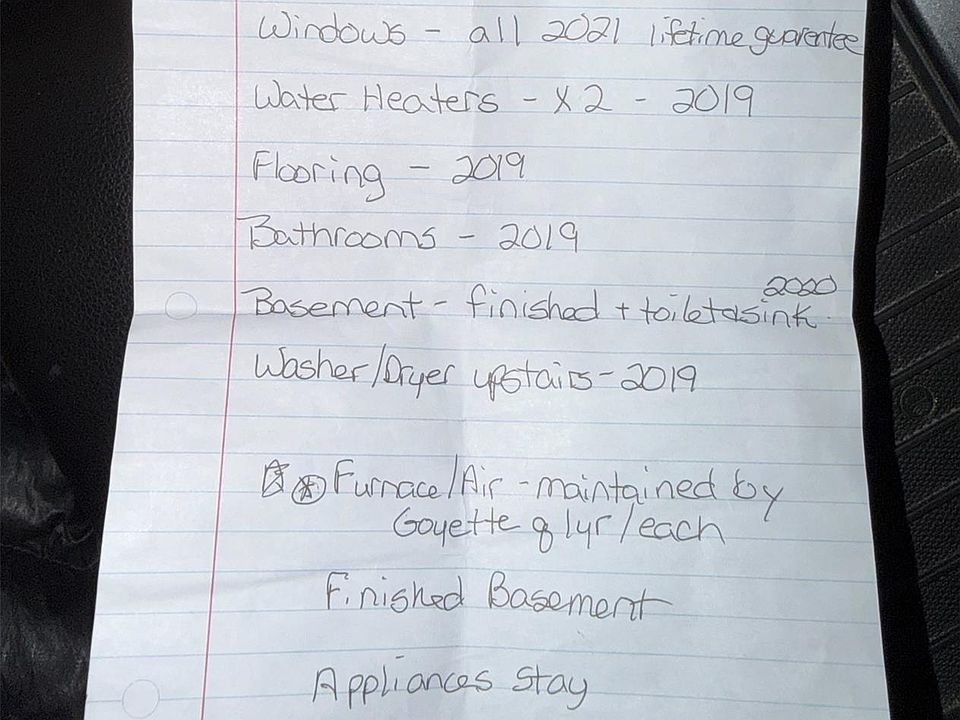 Windows - all 2021 lifetime guarentee
Water Heaters - x 2 - 2019
Flooring - 2019
Bathrooms - 2019
2020
Basement - finished + toilet & sink
Washer/Dryer upstairs - 2019
Furnace/Air - maintained by
Goyette q 1yr/each
Finished Basement
Appliances Stay